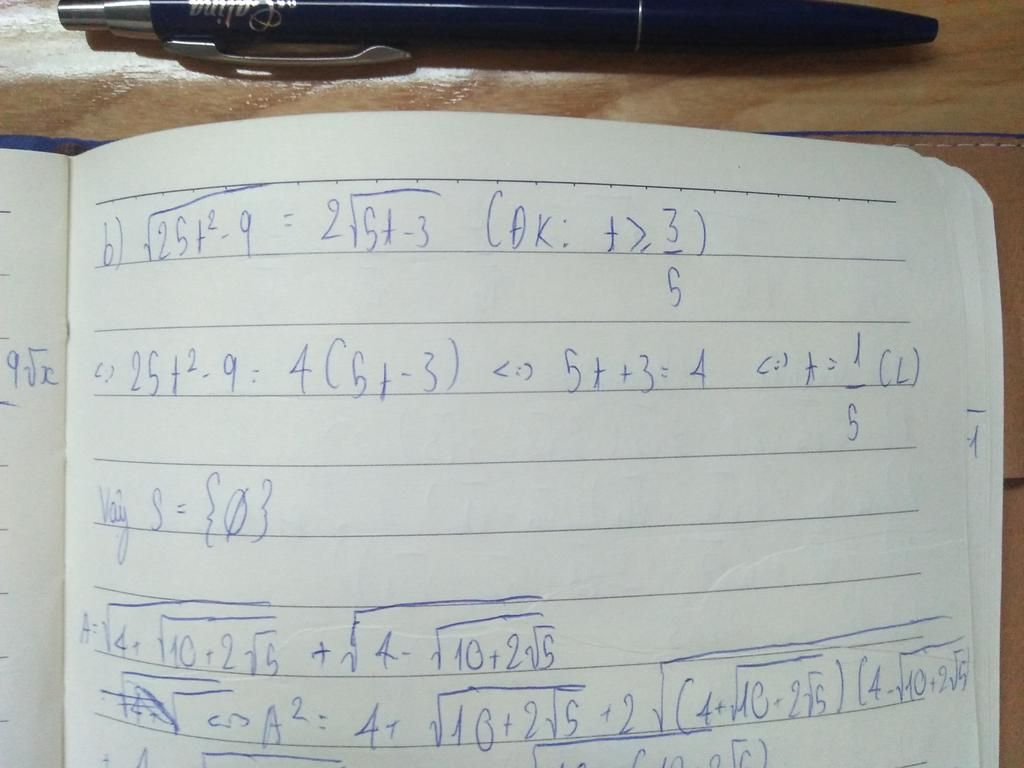 b) √(25t² - 9) = 2√(5t - 3) (ĐK: t ≥ 3/5)
9√x
<=> 25t² - 9 = 4(5t - 3) <=> 5t + 3 = 4 <=> t = 1/5 (L)
1
Vậy S = {Ø}
A = √(4 + √(10 + 2√5)) + √(4 - √(10 + 2√5))
<=> A² = 4 + √(10 + 2√5) + 2√((4 + √(10 + 2√5))(4 - √(10 + 2√5)